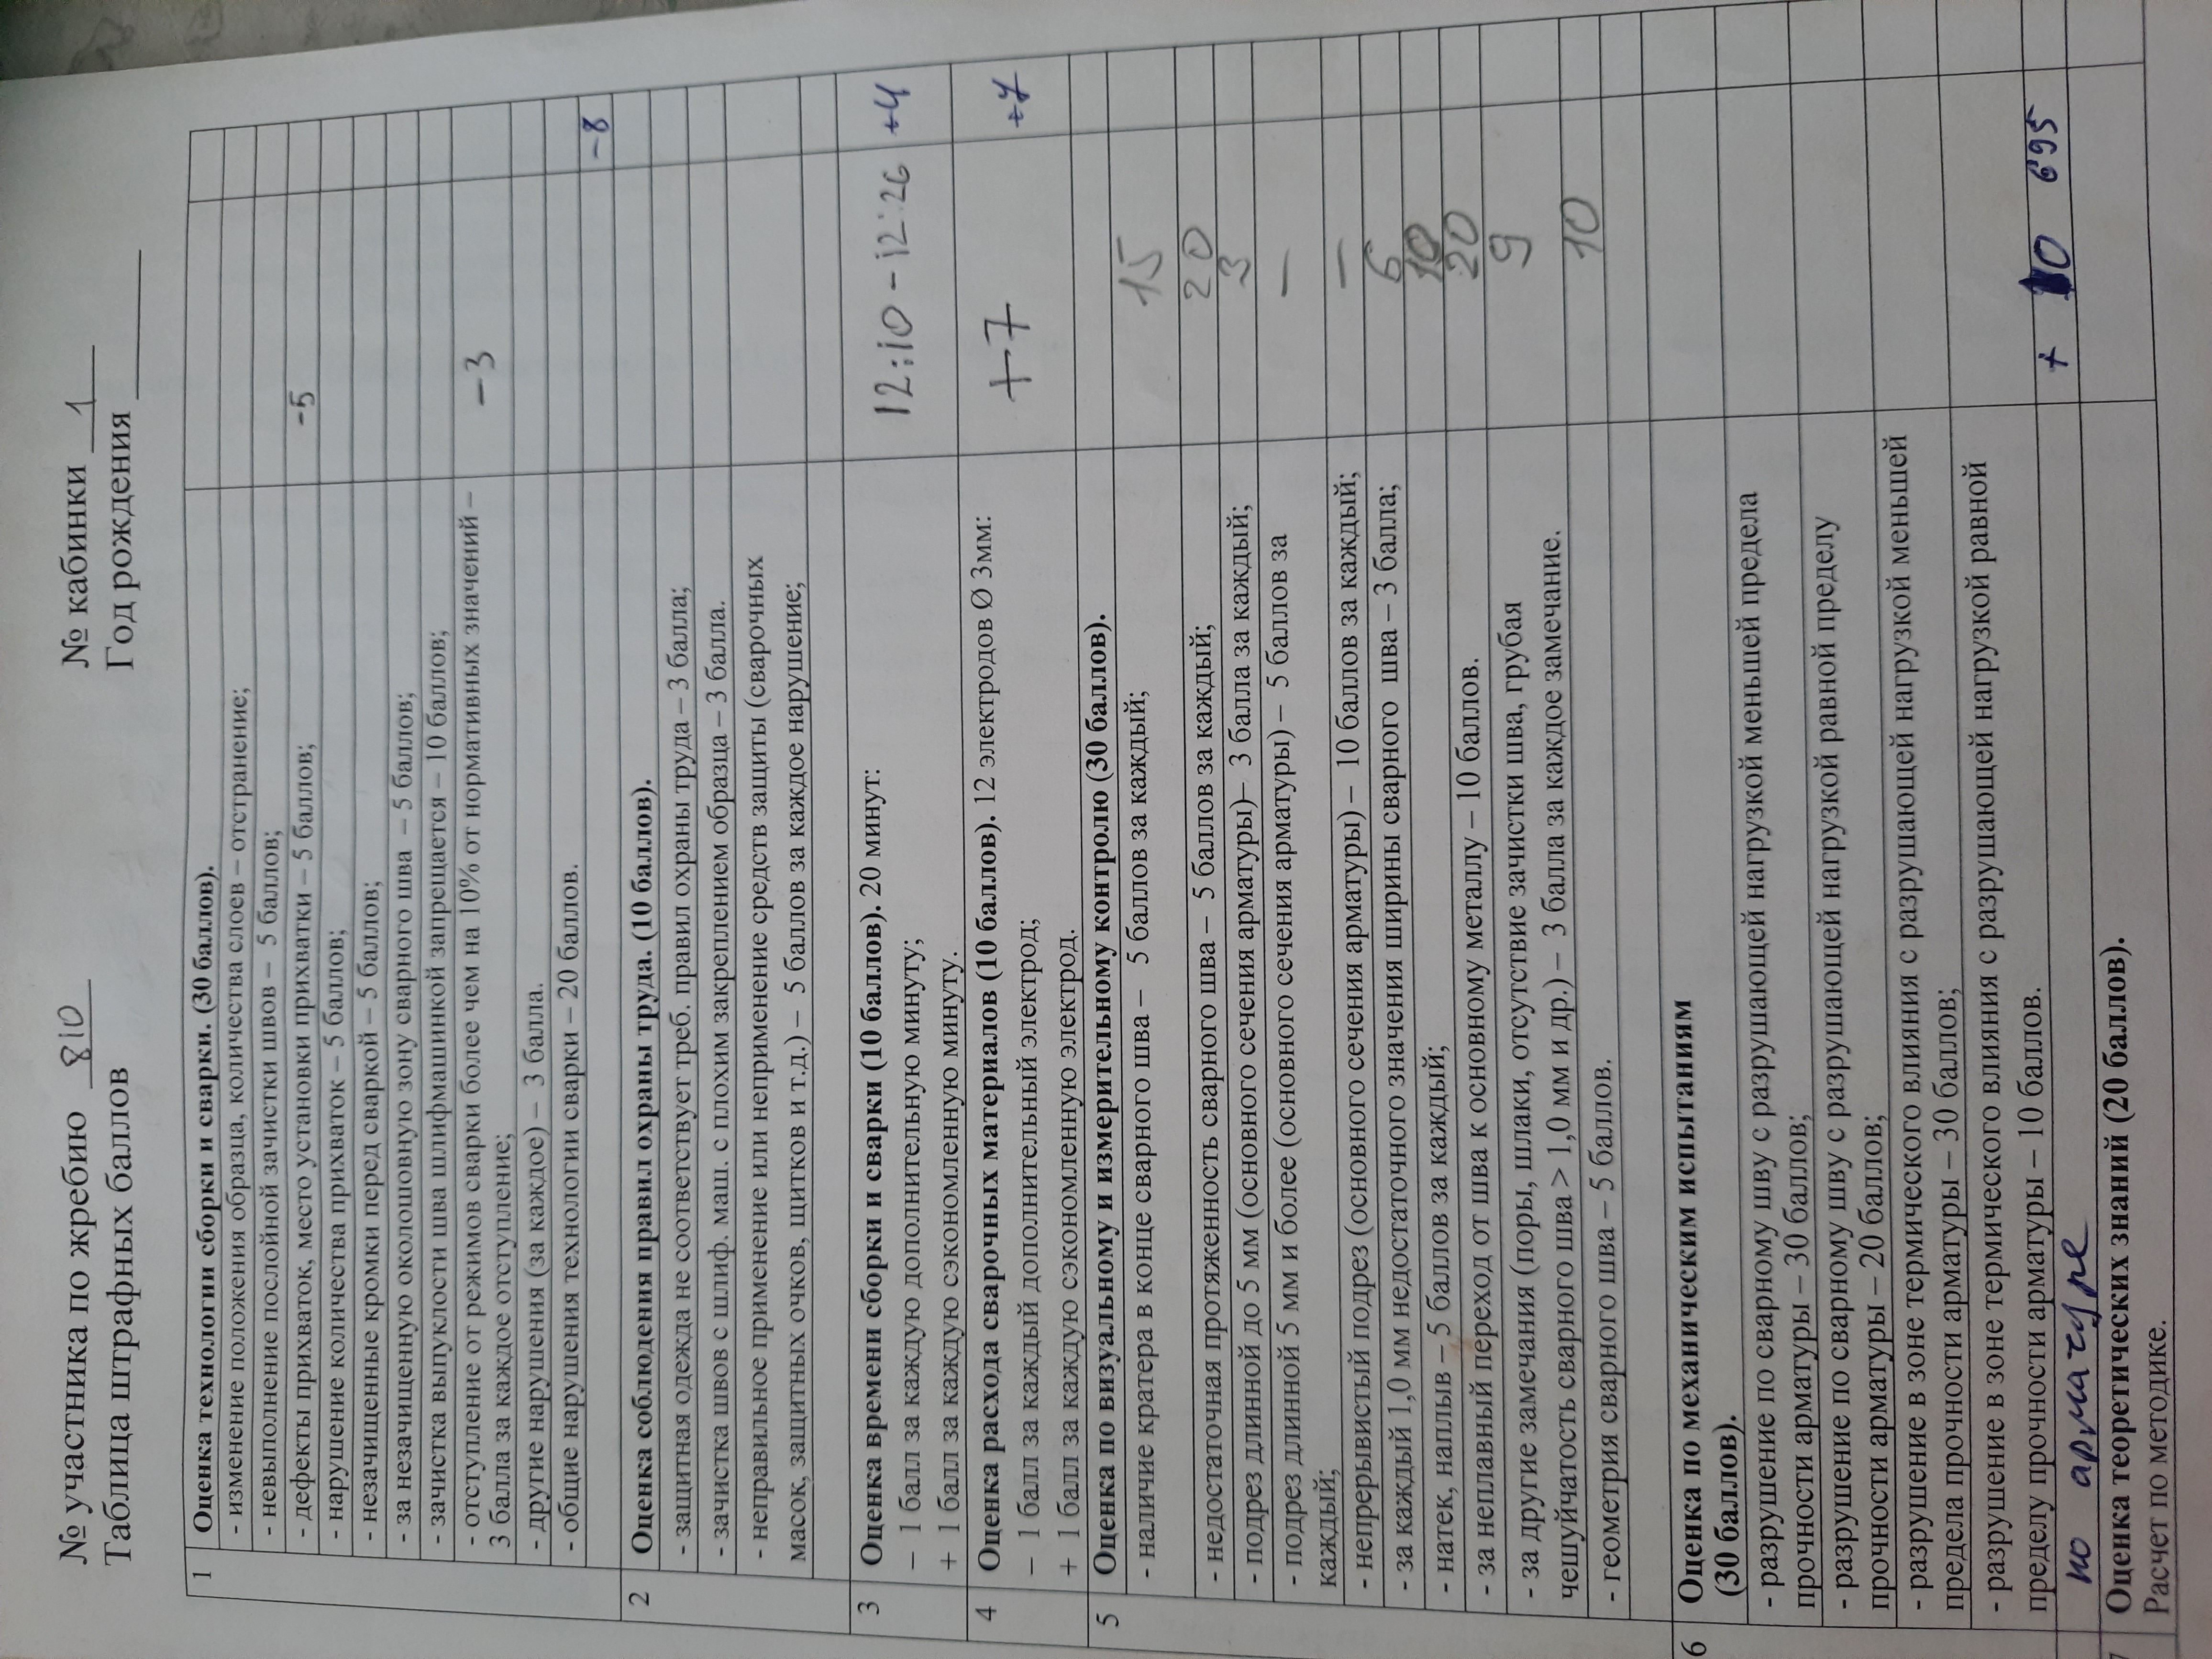 № участника по жребию 810 № кабинки 1
Таблица штрафных баллов Год рождения
1 Оценка технологии сборки и сварки. (30 баллов).
- изменение положения образца, количества слоев – отстранение;
- невыполнение послойной зачистки швов – 5 баллов;
- дефекты прихваток, место установки прихватки – 5 баллов; -5
- нарушение количества прихваток – 5 баллов;
- незачищенные кромки перед сваркой – 5 баллов;
- за незачищенную околошовную зону сварного шва – 5 баллов;
- зачистка выпуклости шва шлифмашинкой запрещается – 10 баллов;
- отступление от режимов сварки более чем на 10% от нормативных значений – -3
3 балла за каждое отступление;
- другие нарушения (за каждое) – 3 балла.
- общие нарушения технологии сварки – 20 баллов.
-8
2 Оценка соблюдения правил охраны труда. (10 баллов).
- защитная одежда не соответствует треб. правил охраны труда – 3 балла;
- зачистка швов с шлиф. маш. с плохим закреплением образца – 3 балла.
- неправильное применение или неприменение средств защиты (сварочных
масок, защитных очков, щитков и т.д.) – 5 баллов за каждое нарушение;
3 Оценка времени сборки и сварки (10 баллов). 20 минут:
– 1 балл за каждую дополнительную минуту; 12:10 - 12:26 +4
+ 1 балл за каждую сэкономленную минуту.
4 Оценка расхода сварочных материалов (10 баллов). 12 электродов Ø 3мм:
– 1 балл за каждый дополнительный электрод; +7 +7
+ 1 балл за каждую сэкономленную электрод.
5 Оценка по визуальному и измерительному контролю (30 баллов).
- наличие кратера в конце сварного шва – 5 баллов за каждый; 15
- недостаточная протяженность сварного шва – 5 баллов за каждый; 20
- подрез длинной до 5 мм (основного сечения арматуры)– 3 балла за каждый; 3
- подрез длинной 5 мм и более (основного сечения арматуры) – 5 баллов за —
каждый;
- непрерывистый подрез (основного сечения арматуры) – 10 баллов за каждый; —
- за каждый 1,0 мм недостаточного значения ширины сварного шва – 3 балла; 6
- натек, наплыв – 5 баллов за каждый; 10
- за неплавный переход от шва к основному металлу – 10 баллов. 20
- за другие замечания (поры, шлаки, отсутствие зачистки шва, грубая 9
чешуйчатость сварного шва > 1,0 мм и др.) – 3 балла за каждое замечание.
- геометрия сварного шва – 5 баллов. 10
6 Оценка по механическим испытаниям
(30 баллов).
- разрушение по сварному шву с разрушающей нагрузкой меньшей предела
прочности арматуры – 30 баллов;
- разрушение по сварному шву с разрушающей нагрузкой равной пределу
прочности арматуры – 20 баллов;
- разрушение в зоне термического влияния с разрушающей нагрузкой меньшей
предела прочности арматуры – 30 баллов;
- разрушение в зоне термического влияния с разрушающей нагрузкой равной
пределу прочности арматуры – 10 баллов.
по арматуре + 10 695
7 Оценка теоретических знаний (20 баллов).
Расчет по методике.